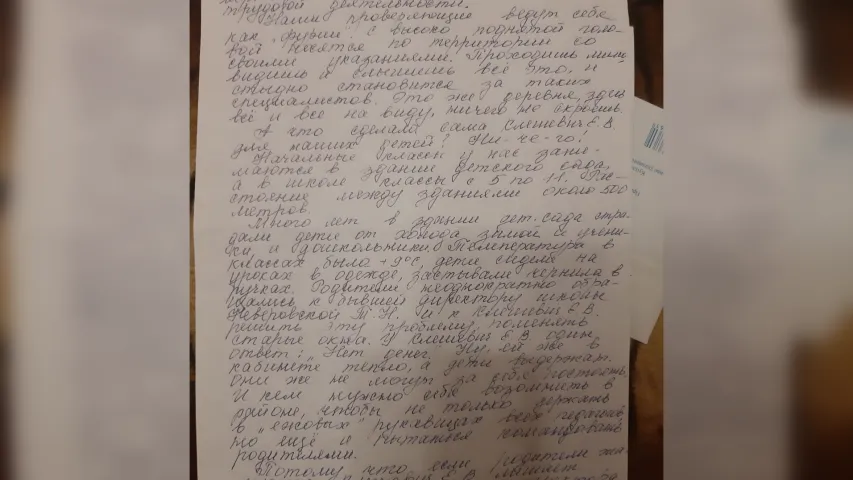 трудовой деятельности.
Наши проверяющие ведут себя
как "фунии": с высоко поднятой голо-
вой носятся по территории со
своими указаниями. Проходишь мимо,
видишь и слышишь всё это, и
стыдно становится за таких
специалистов. Это же деревня, здесь
всё и все на виду, ничего не скроешь.
А что сделала сама Слешевич Е.В.
для наших детей? Ни-че-го!
Начальные классы у нас зани-
маются в здании детского сада,
а в школе классы с 5 по 11. Рас-
стояние между зданиями около 500
метров.
Много лет в здании дет. сада стра-
дали дети от холода зимой и учени-
ки, и дошкольники. Температура в
классах была +9°С, дети сидели на
уроках в одежде, застывали чернила в
ручках. Родители неоднократно обра-
щались к бывшей директору школы
Неверовской Т.Н. и к Слешевич Е.В.
решить эту проблему, поменять
старые окна. У Слешевич Е.В. один
ответ: "Нет денег. Ни ей же в
кабинете тепло, а дети выдержат.
Они же не могут за себя постоять.
И кем нужно себя возомнить в
районе, чтобы не только держать
в "ежовых" рукавицах всех педагогов,
но ещё и пытаться командовать
родителями.
Потому что если родители